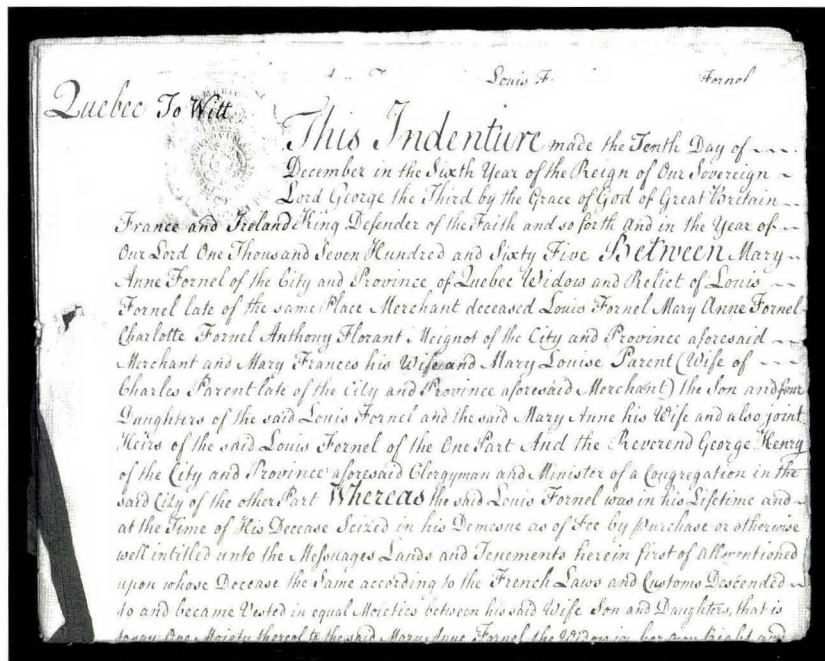 Louis F. Fornel
Quebec To Witt
This Indenture made the Tenth Day of
December in the Sixth Year of the Reign of Our Sovereign
Lord George the Third by the Grace of God of Great Britain
France and Ireland King Defender of the Faith and so forth and in the Year of
Our Lord One Thousand Seven Hundred and Sixty Five Between Mary
Anne Fornel of the City and Province of Quebec Widow and Relict of Louis
Fornel late of the same Place Merchant deceased Louis Fornel Mary Anne Fornel
Charlotte Fornel Anthony Florant Meignot of the City and Province aforesaid
Merchant and Mary Frances his Wife and Mary Louise Parent (Wife of
Charles Parent late of the City and Province aforesaid Merchant) the Son and four
Daughters of the said Louis Fornel and the said Mary Anne his Wife and also joint
Heirs of the said Louis Fornel of the One Part And the Reverend George Henry
of the City and Province aforesaid Clergyman and Minister of a Congregation in the
said City of the other Part Whereas the said Louis Fornel was in his Lifetime and
at the Time of His Decease Seized in his Demesne as of Fee by purchase or otherwise
well intitled unto the Messuages Lands and Tenements herein first of all mentioned
upon whose Decease the Same according to the French Laws and Customs Descended
to and became Vested in equal Moieties between his said Wife Son and Daughters, that is
to say One Moiety thereof to the said Mary Anne Fornel the Widow in her own Right and